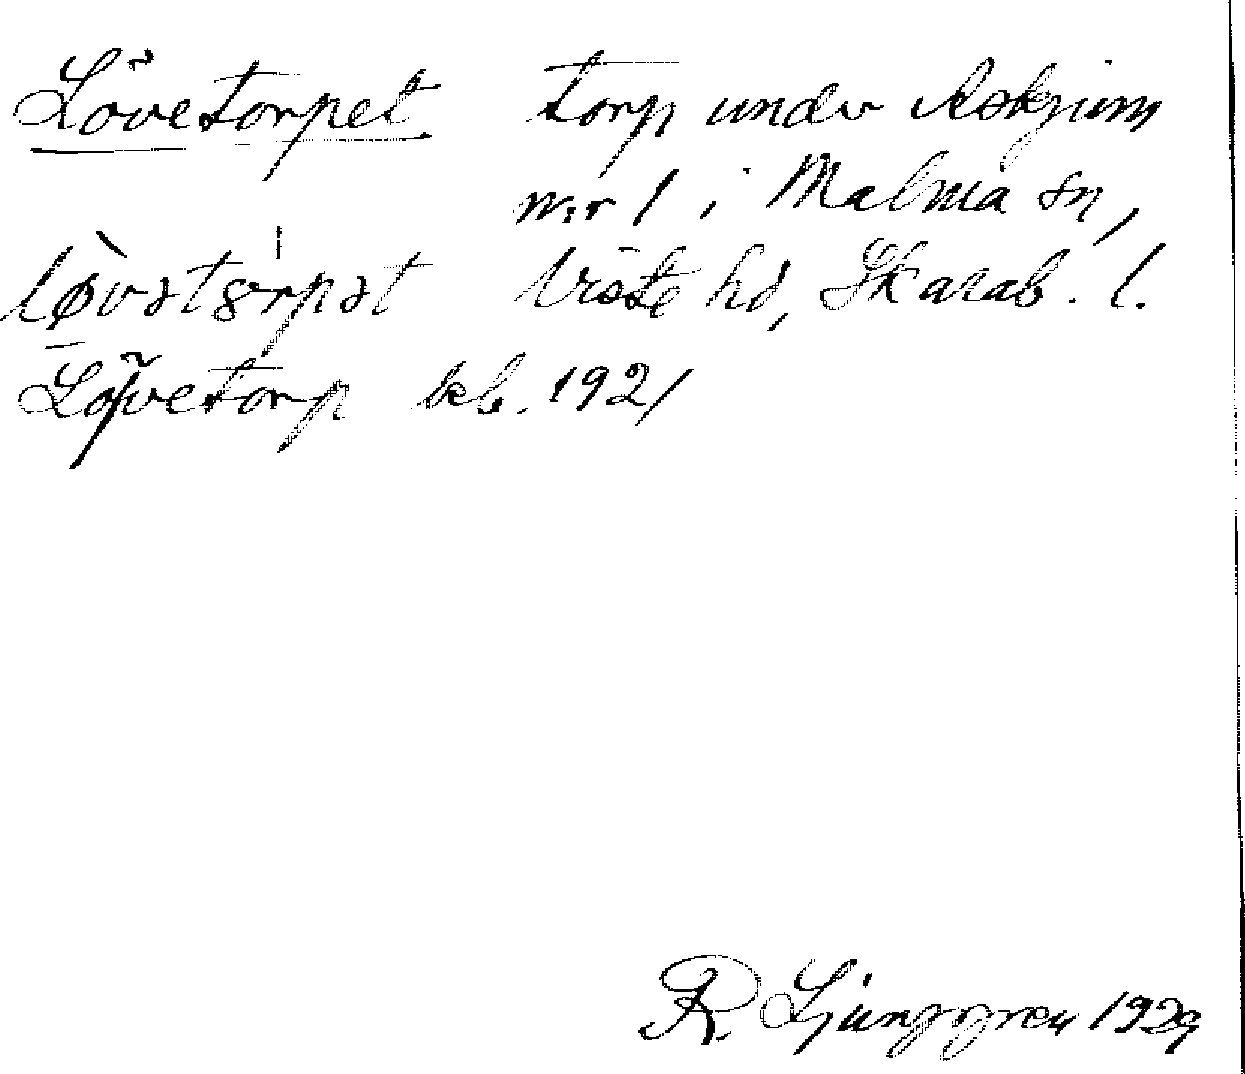 Lövetorpet torp under Askjum
n:r 1 i Malma sn,
Viste hd, Skarab. l.
Lövetorp kb. 1921
R. Ljunggren 1929